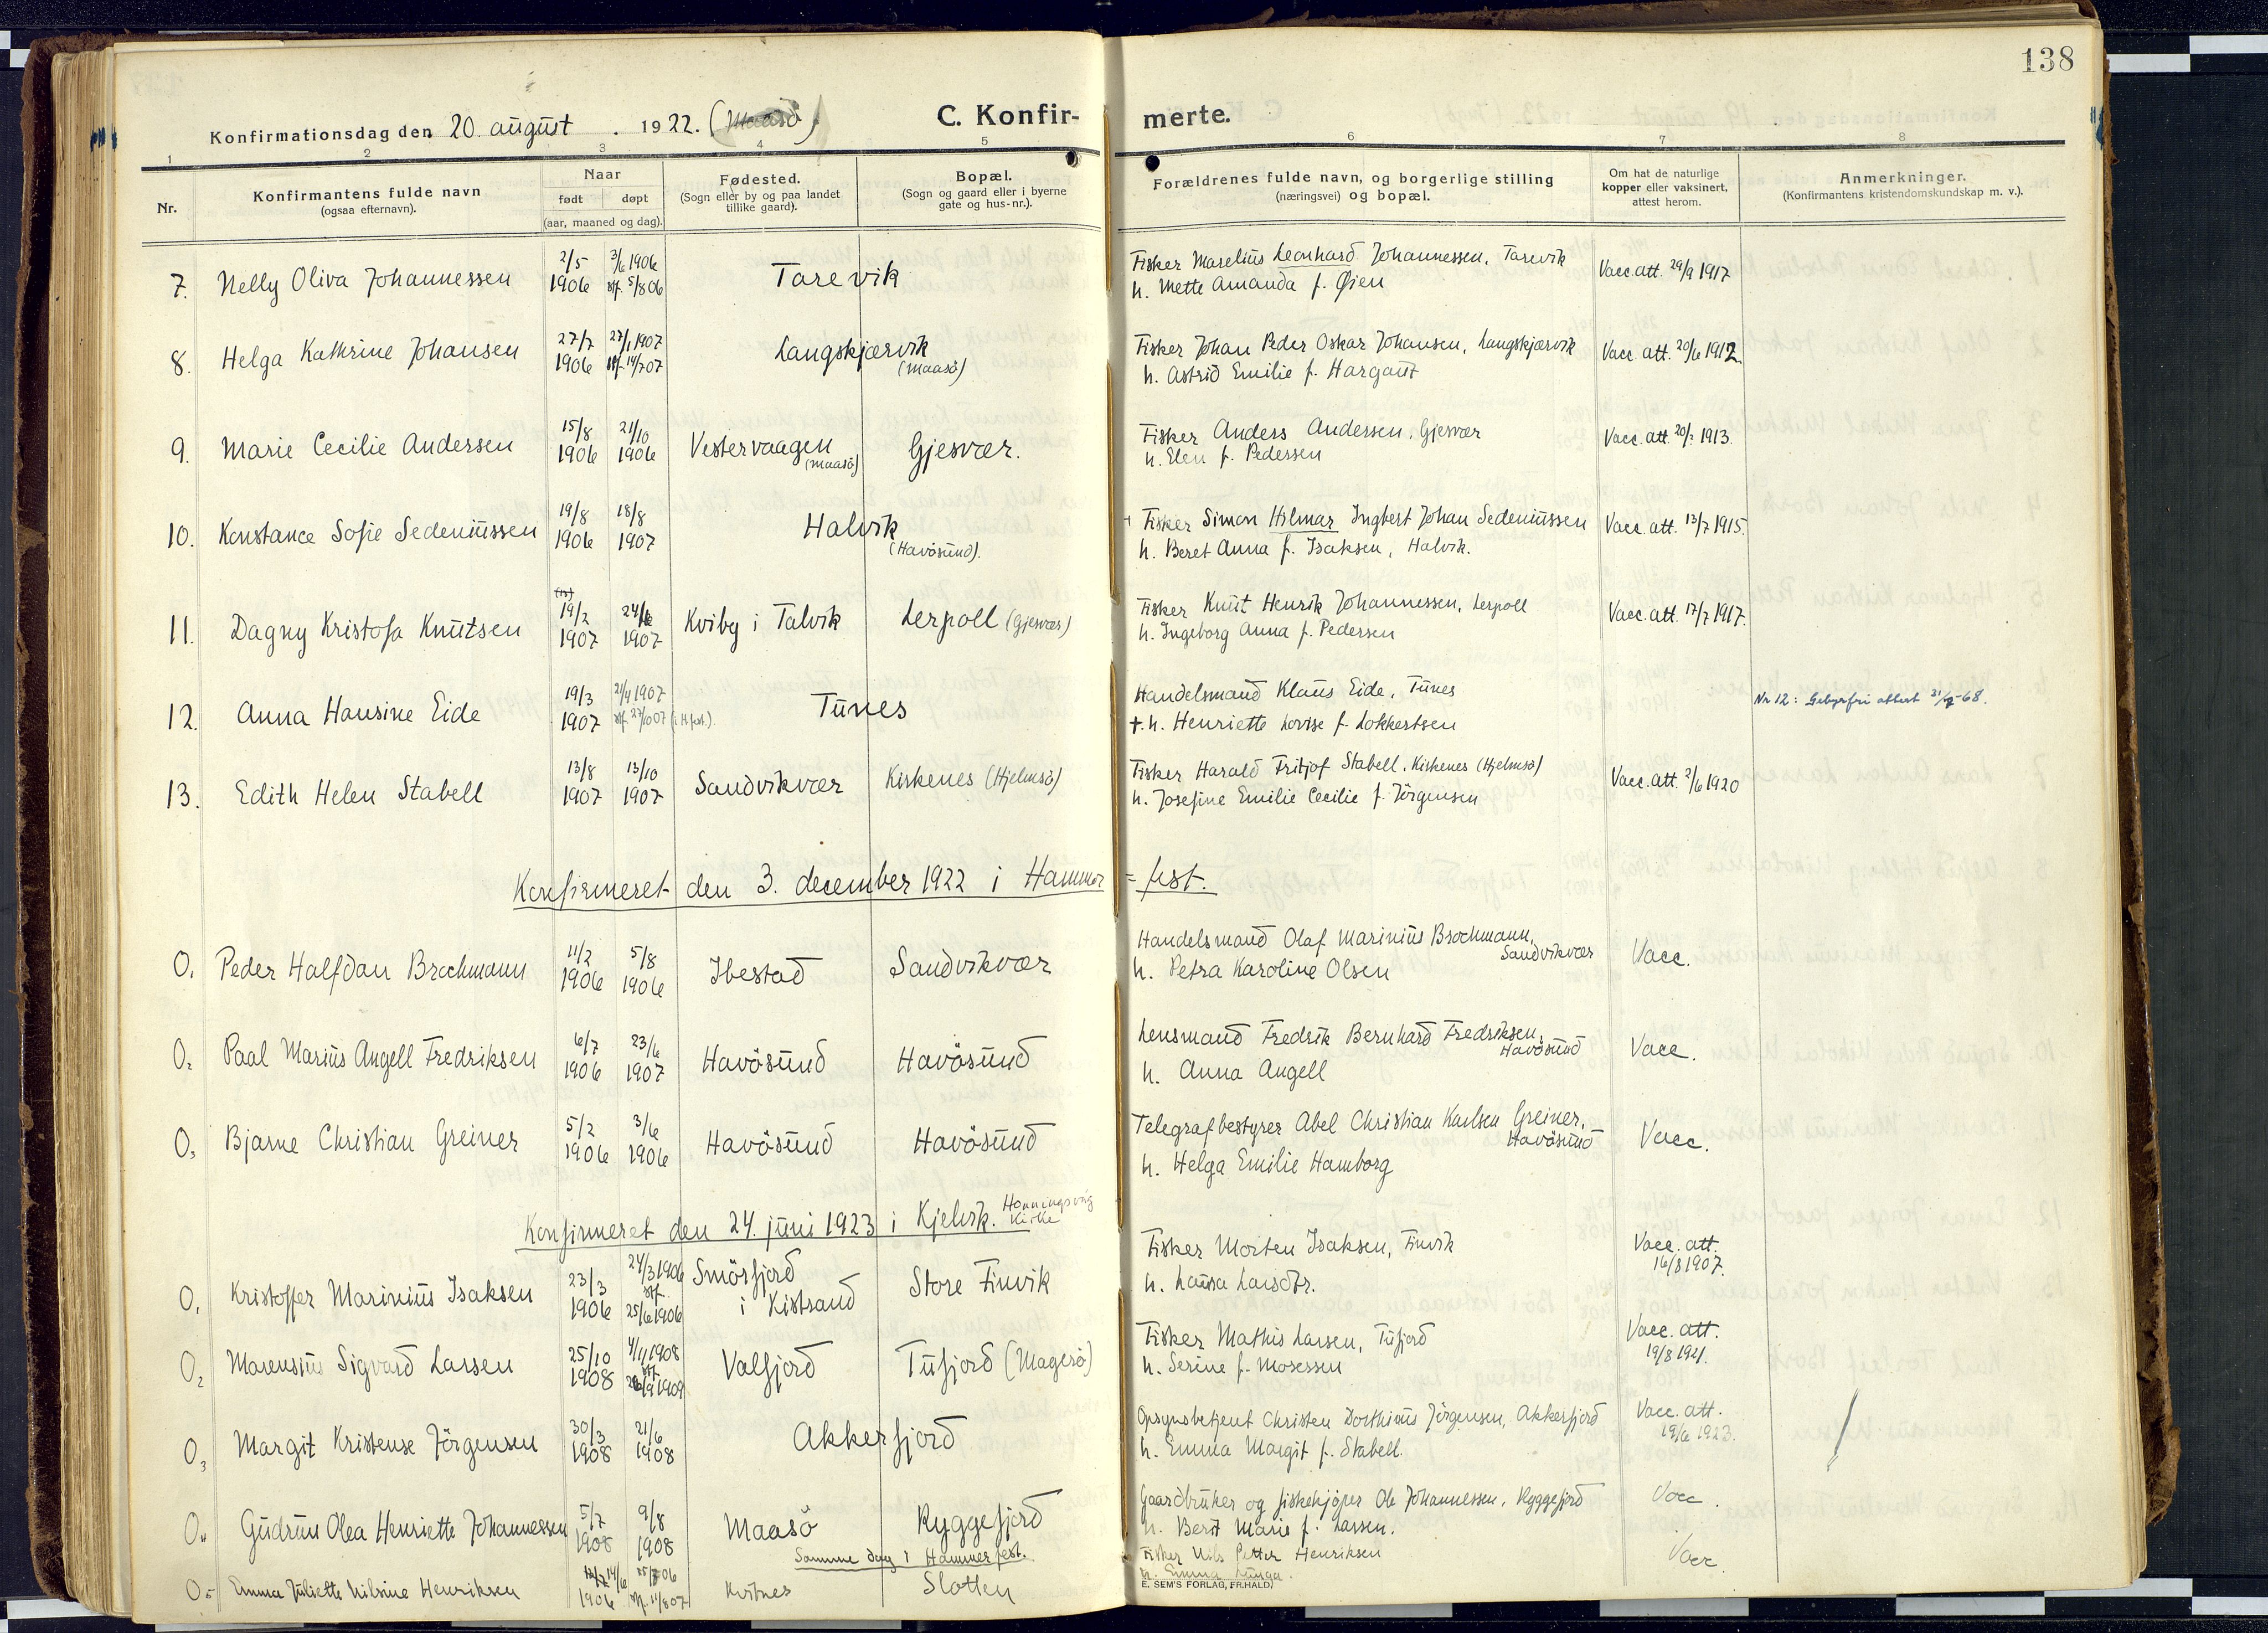 138
Konfirmationsdag den 20. august 1922. (Maasö)
C. Konfir-merte.
1 2 3 4 5 6 7 8
Nr.
Konfirmantens fulde navn
(ogsaa efternavn).
Naar
født døpt
(aar, maaned og dag).
Fødested.
(Sogn eller by og paa landet
tillike gaard).
Bopæl.
(Sogn og gaard eller i byerne
gate og hus-nr.).
Forældrenes fulde navn, og borgerlige stilling
(næringsvei) og bopæl.
Om hat de naturlige
kopper eller vaksinert,
attest herom.
Anmerkninger.
(Konfirmantens kristendomskundskap m. v.).
7. Nelly Oliva Johannessen 2/5 1906 3/6 1906 stf. 5/8 06 Tarevik
Fisker Marelius Leonhard Johannessen, Tarevik
h. Mette Amanda f. Øien
Vacc. att. 29/9 1917
8. Helga Kathrine Johansen 27/7 1906 27/1 1907 stf. 14/7 07 Langskjærvik (Maasö)
Fisker Johan Peder Oskar Johansen, Langskjærvik
h. Astrid Emilie f. Hargaut
Vacc. att. 20/6 1912.
9. Marie Cecilie Andersen 15/8 1906 21/10 1906 Vestervaagen (Maasö) Gjesvær.
Fisker Anders Andersen, Gjesvær
h. Elen f. Pedersen
Vacc. att. 20/7 1913.
10. Konstance Sofie Sedeniussen 19/8 1906 18/8 1907 Halvik (Havösund).
Fisker Simon Hilmar Ingbert Johan Sedeniussen
h. Beret Anna f. Isaksen, Halvik.
Vacc. att. 13/7 1915.
11. Dagny Kristofa Knutsen 19/2 1907 24/6 1907 Kviby i Talvik Lerpoll (Gjesvær)
Fisker Knut Henrik Johannessen, Lerpoll
h. Ingeborg Anna f. Pedersen
Vacc. att. 17/7 1917.
12. Anna Hansine Eide 19/3 1907 21/4 1907 stf. 27/10 07 (i H.fest.) Tunes
Handelsmand Klaus Eide, Tunes
†. h. Henriette Lovise f. Lokkertsen
Nr 12: Gebyrfri attest
13. Edith Helen Stabell 13/8 1907 13/10 1907 Sandvikvær Kirkenes (Hjelmsö)
Fisker Harald Fritjof Stabell. Kirkenes (Hjelmsö)
h. Josefine Emilie Cecilie f. Jörgensen
Vacc. att. 2/6 1920
Konfirmeret den 3. december 1922 i Hammer=fest.
O1 Peder Halfdan Brochmann 11/2 1906 5/8 1906 Ibestad Sandvikvær
Handelsmand Olaf Marinius Brochmann, Sandvikvær
h. Petra Karoline Olsen
Vacc.
O2 Paal Marius Angell Fredriksen 6/7 1906 23/6 1907 Havösund Havösund
Lensmand Fredrik Bernhard Fredriksen, Havösund
h. Anna Angell
Vacc.
O3 Bjarne Christian Greiner 5/2 1906 3/6 1906 Havösund Havösund
Telegrafbestyrer Abel Christian Karlsen Greiner, Havösund
h. Helga Emilie Hamborg
Vacc.
Konfirmeret den 24. juni 1923 i Kjelvik. Honningsvåg Kirke
O1 Kristoffer Marinius Isaksen 23/3 1906 24/3 1906 stf. 25/6 1906 Smörfjord i Kistrand Store Finvik
Fisker Morten Isaksen, Finvik
h. Laura Larsdtr.
Vacc. att. 16/8 1907.
O2 Marensius Sigvard Larsen 25/10 1908 4/11 1908 stf. 26/9 1909 Valfjord Tufjord (Magerö)
Fisker Mathis Larsen, Tufjord
h. Serine f. Mosessen
Vacc. att. 19/8 1921.
O3 Margit Kristense Jörgensen 30/3 1908 21/6 1908 Akkerfjord
Opsynsbetjent Christen Dorthius Jörgensen, Akkerfjord
h. Emma Margit f. Stabell.
Vacc. att. 19/6 1923.
O4 Gudrun Olea Henriette Johannessen 5/7 1908 9/8 1908 Maasö Ryggefjord
Gaardbruker og fiskekjöper Ole Johannessen, Ryggefjord
h. Berit Marie f. Larsen.
Vacc.
Samme dag i Hammerfest.
O5 Emma Juliette Nilsine Henriksen 14/6 1906 stf. 11/8 07 Kvitnes Slotten
Fisker Nils Petter Henriksen
h. Emma
Vacc.
E. SEM'S FORLAG, FR.HALD